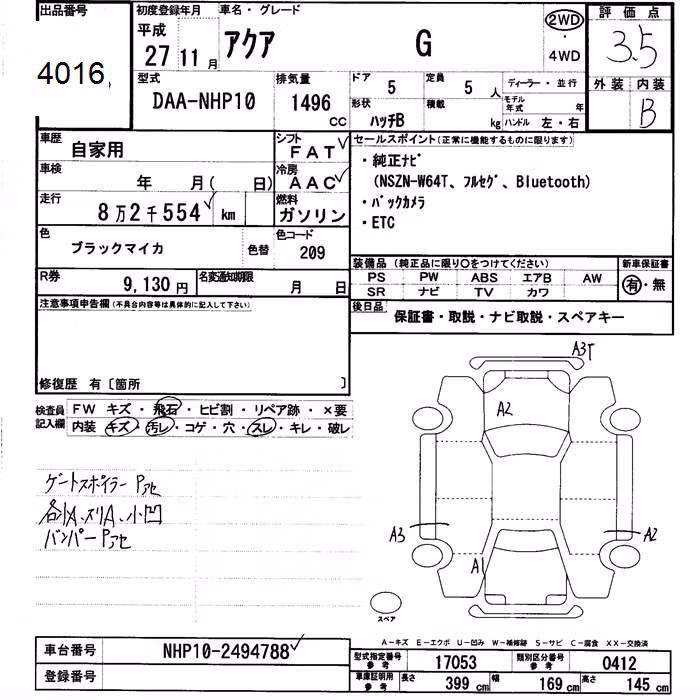 出品番号 初度登録年月 車名・グレード 評価点
4016 平成 27年 11月 アクア G 2WD・4WD 3.5
型式 排気量 ドア 5 定員 5人 ディーラー・並行 外装 内装
DAA-NHP10 1496 CC 形状 ハッチB 積載 kg モデル年式 年 ハンドル 左・右 B
車歴 自家用 シフト FAT セールスポイント(正常に機能するものに限ります)
車検 年 月( 日) 冷房 AAC ・純正ナビ
(NSZN-W64T、フルセグ、Bluetooth)
走行 8万2千554 km 燃料 ガソリン ・バックカメラ
・ETC
色 ブラックマイカ 色替 色コード 209
装備品(純正品に限り○をつけてください) 新車保証書
R券 9,130円 名変通知期限 月 日 PS PW ABS エアB AW 有・無
SR ナビ TV カワ
注意事項申告欄(不具合内容等は具体的に記入して下さい) 後日品 保証書・取説・ナビ取説・スペアキー
修復歴 有〔箇所 〕
A3T
検査員記入欄 FW キズ・飛石・ヒビ割・リペア跡・×要
内装 キズ・汚レ・コゲ・穴・スレ・キレ・破レ
A2
ゲートスポイラー Pアセ
各所A、スリA、小凹
バンパーPアセ
A3 A2
A1
スペア
A-キズ E-エクボ U-凹み W-補修跡 S-サビ C-腐食 XX-交換済
車台番号 NHP10-2494788
型式指定番号 参考 17053 類別区分番号 参考 0412
登録番号
車庫証明用 参考 長さ 399cm 幅 169cm 高さ 145cm